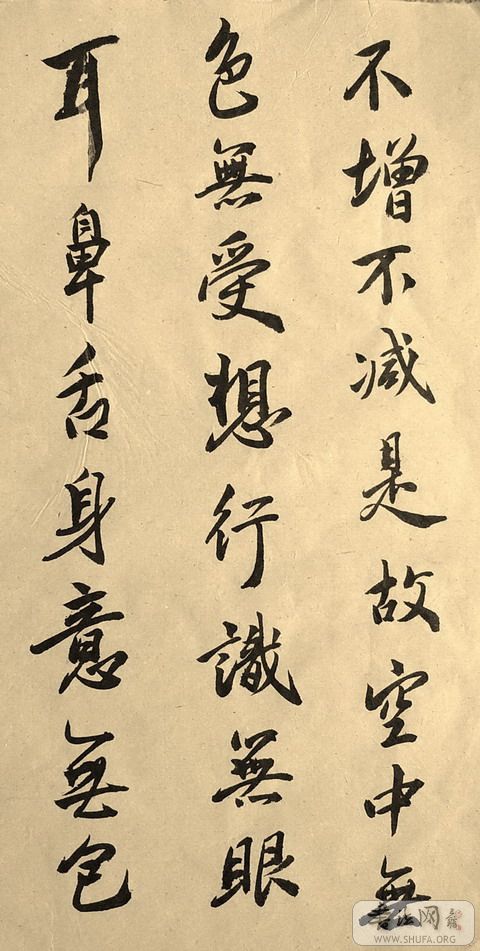 不增不减是故空中無
色無受想行識無眼
耳鼻舌身意無色
书法网
WWW.SHUFA.ORG